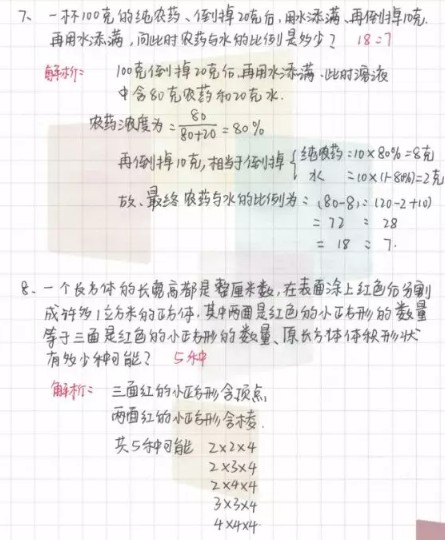 7、一杯100克的纯农药、倒掉20克后,用水添满、再倒掉10克.
再用水添满,问此时农药与水的比例是多少? 18:7
解析: 100克倒掉20克后,再用水添满.此时溶液
中含80克农药和20克水.
农药浓度为 = 80/(80+20) = 80%
再倒掉10克,相当于倒掉 { 纯农药 = 10×80% = 8克
水 = 10×(1-80%) = 2克
故、最终农药与水的比例为 = (80-8):(20-2+10)
= 72 : 28
= 18 : 7.
8、一个长方体的长宽高都是整厘米数,在表面涂上红色后分割
成许多1立方米的正方体,其中两面是红色的小正方形的数量
等于三面是红色的小正方形的数量、原长方体体积形状
有多少种可能? 5种
解析: 三面红的小正方形含顶点,
两面红的小正方形含棱.
共5种可能 2×2×4
2×3×4
2×4×4
3×3×4
4×4×4